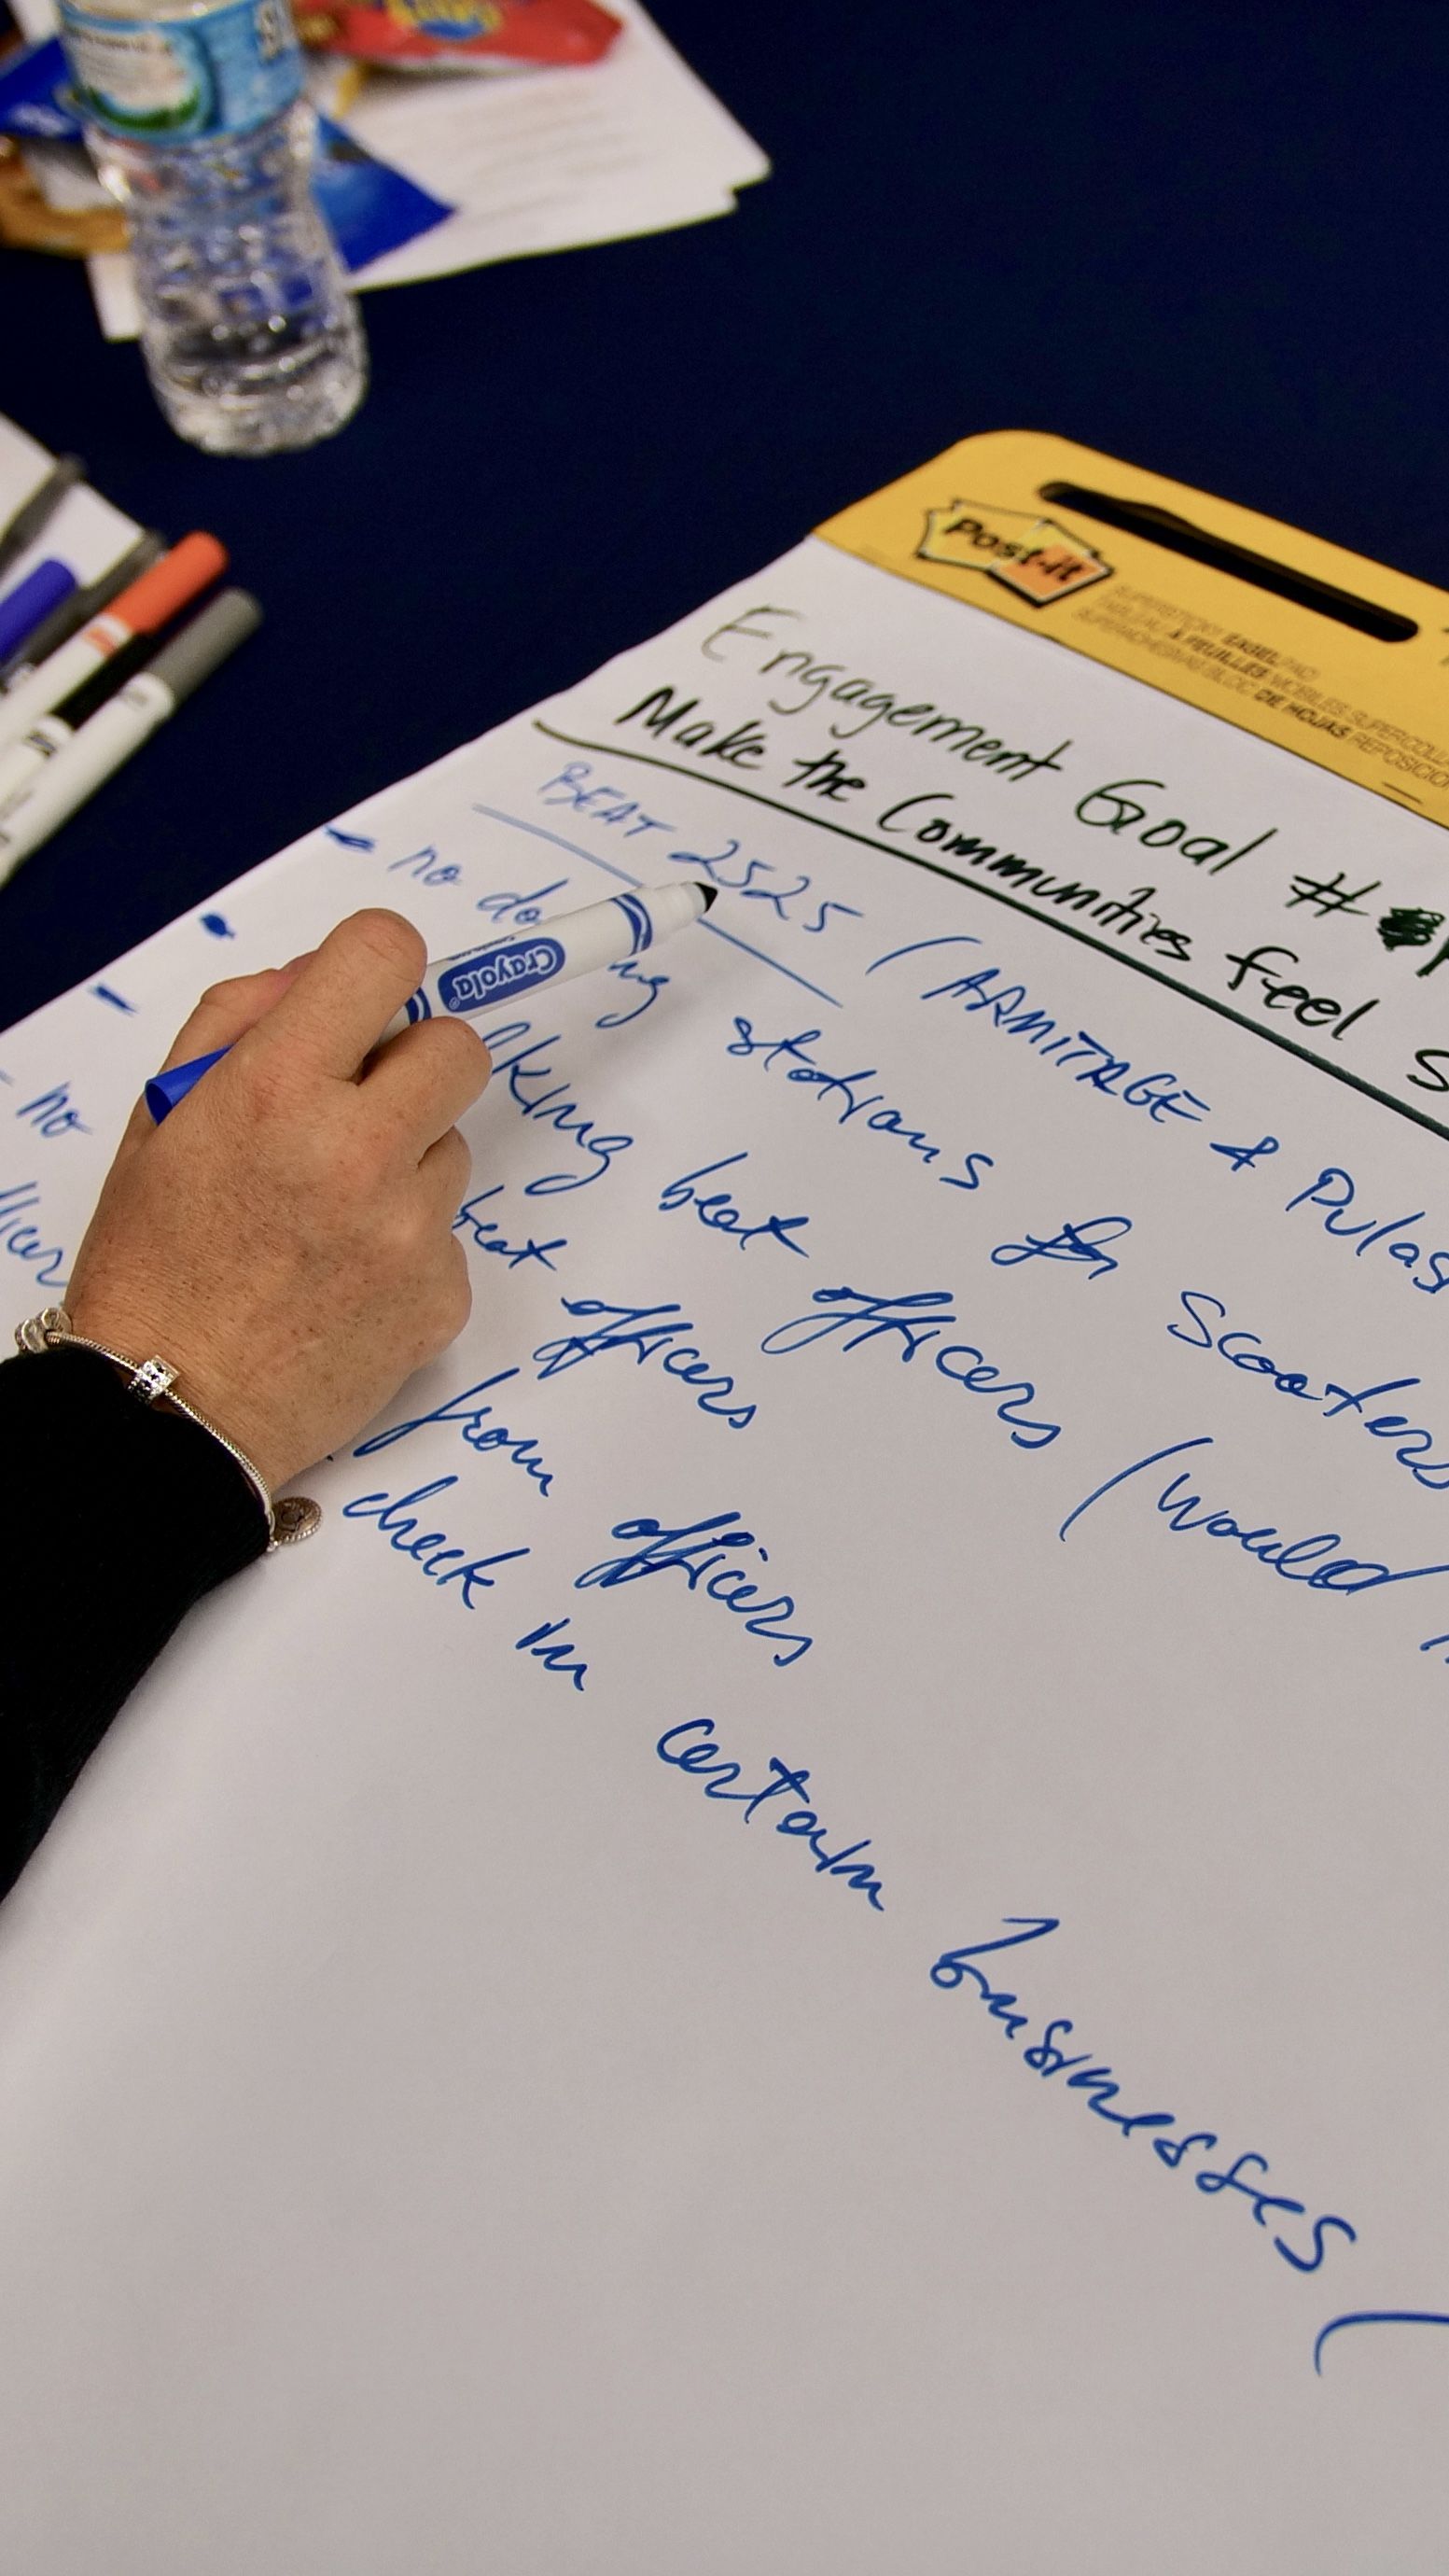 Post-it
SUPERSTICKY EASEL PAD
TABLEAU À FEUILLES MOBILES SUPERCOLL
SUPERADHESIVAS BLOC DE HOJAS REPOSICIO
Engagement Goal #
Make the Communities feel S
BEAT 2525 (ARMITAGE & Pulas
no do ng stations for Scooters
lking beat officers (would
no beat officers
from officers
check in certain businesses (
Crayola